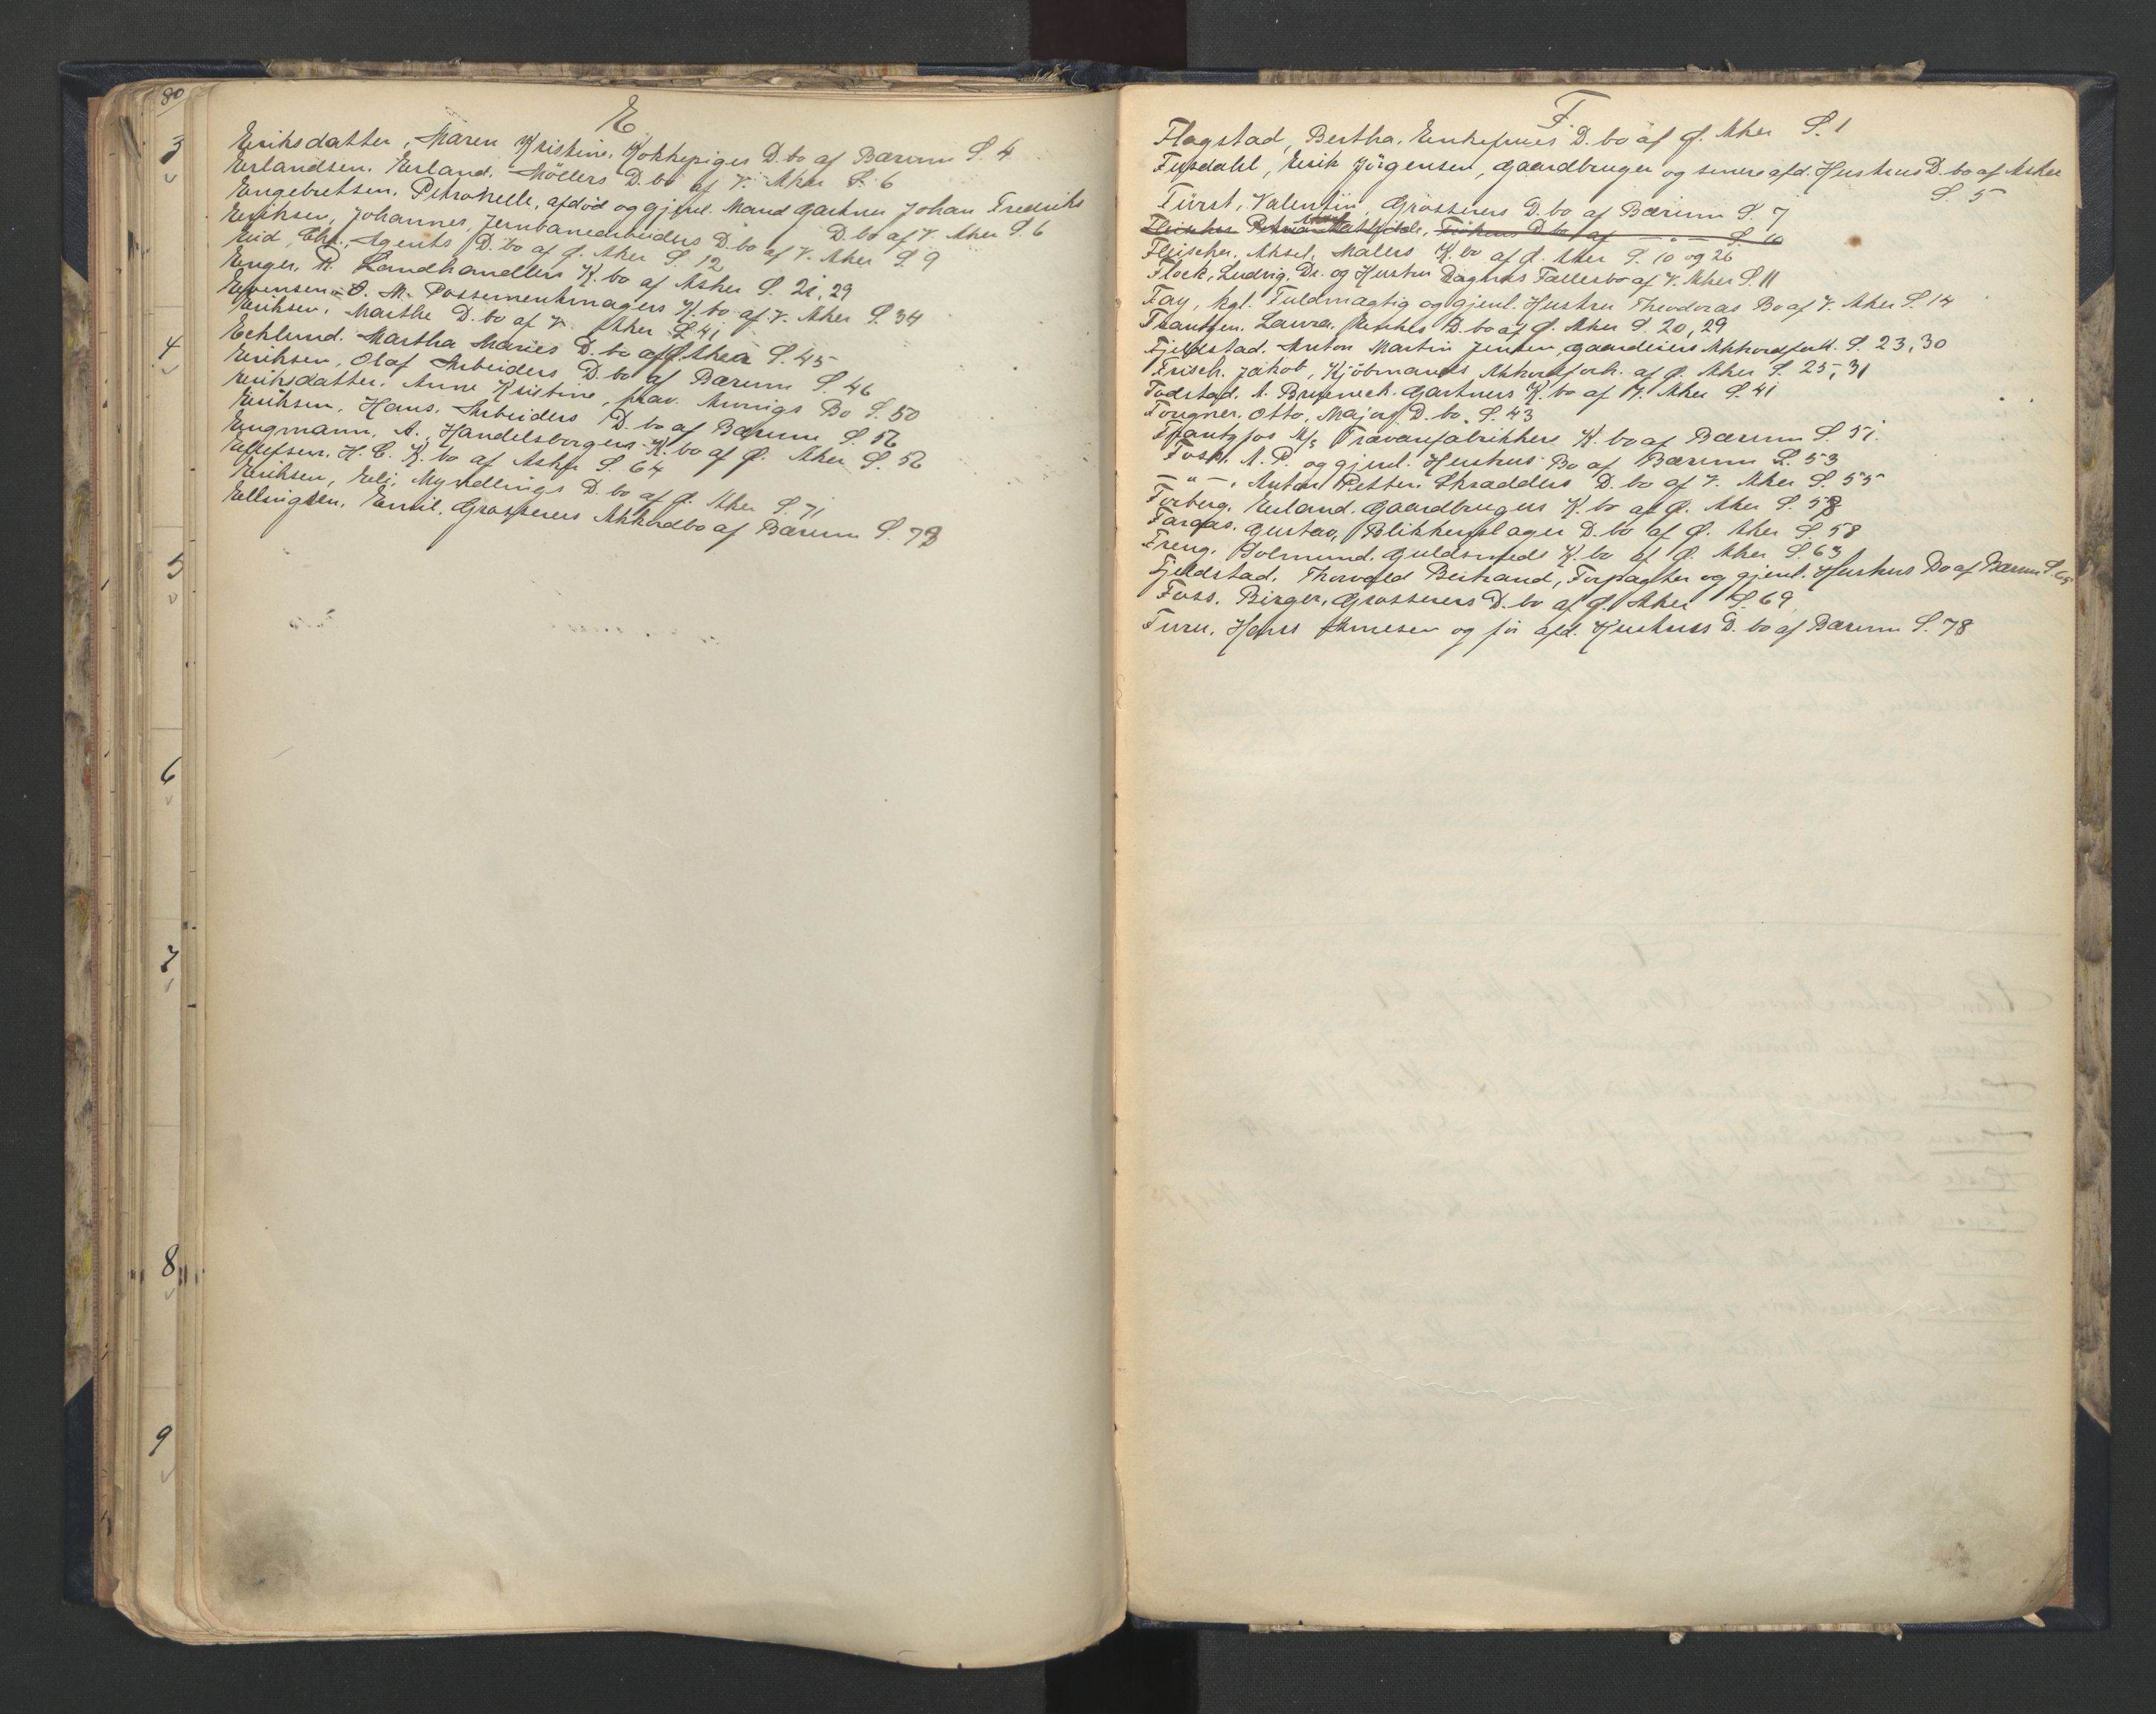 80
3
4
5
6
7
8
9
E
Eriksdatter, Maren Kristine, Kokkepiges D.bo af Bærum S. 4
Erlandsen, Erland, Möllers D.bo af V. Aker S. 6
Engebretsen, Petronelle, afdöd og gjenl. Mand Gartner Johan Fredriks
D.bo af V. Aker S. 6
Eriksen, Johannes, Jernbanearbeiders D.bo af V. Aker S. 9
Eid, Chr., Agents D.bo af Ø. Aker S. 12
Enger, R. Landhandlers K.bo af Asker S. 21, 29
Evensen, O. M. Possementmagers K.bo af V. Aker S. 34
Eriksen, Marthe D.bo af V. Aker S. 41
Ecklund, Martha Maries D.bo af Ø. Aker S. 45
Eriksen, Olaf Arbeiders D.bo af Bærum S. 46
Eriksdatter, Anne Kristine, Bo S. 50
Eriksen, Hans, Arbeiders D.bo af Bærum S. 56
Engmann, A., Handelsborgers K.bo af Ø. Aker S. 56
Ellefsen, H. C. K.bo af Asker S. 64
Eriksen, Eli, Myndlings D.bo af Ø. Aker S. 71
Ellingsen, Emil, Grosserers Akkordbo af Bærum S. 78
F.
Flagstad, Bertha, Enkefrues D.bo af Ø. Aker S. 1
Fusdahl, Erik Jörgensen, Gaardbruger og senere afd. Hustrus D.bo af Asker
S. 5
Fürst, Valentin, Grosserers D.bo af Bærum S. 7
Fleischer, Mathilde, Frökens D.bo af — " — S. 10
Fleischer, Aksel, Malers K.bo af Ø. Aker S. 10 og 26
Flock, Ludvig, Dr. og Hustru Dagmars Fællesbo af V. Aker S. 11
Fay, kgl. Fuldmægtig og gjenl. Hustru Theodoras Bo af V. Aker S. 14
Frantzen, Laura, Enkes D.bo af Ø. Aker S. 20, 29
Fjeldstad, Anton Martin Jensen, Gaardeiers Akkordforh. S. 23, 30
Frisch, Jakob, Kjöbmands Akkordforh. af Ø. Aker S. 25, 31
Fodstad, A. Brynech. Gartners K.bo af V. Aker S. 41
Fougner, Otto, Majors D.bo S. 43
Frantzfos A/S Trævarefabrikkers K.bo af Bærum S. 51
Foss, A. P. og gjenl. Hustrus Bo af Bærum S. 53
— " —, Anton Petter, Skradders D.bo af V. Aker S. 55
Forberg, Erland, Gaardbrugers K.bo af Ø. Aker S. 58
Fargas, Gustav, Blikkenslager D.bo af Ø. Aker S. 58
Freng, Tolmund, Guldsmeds K.bo af Ø. Aker S. 63
Fjeldstad, Thorvald Bertrand, Forpagter og gjenl. Hustrus Bo af Bærum S.
Foss, Birger, Grosserers D.bo af Ø. Aker S. 69
Furu, Hans Arnesen og før afd. Hustrus D.bo af Bærum S. 78